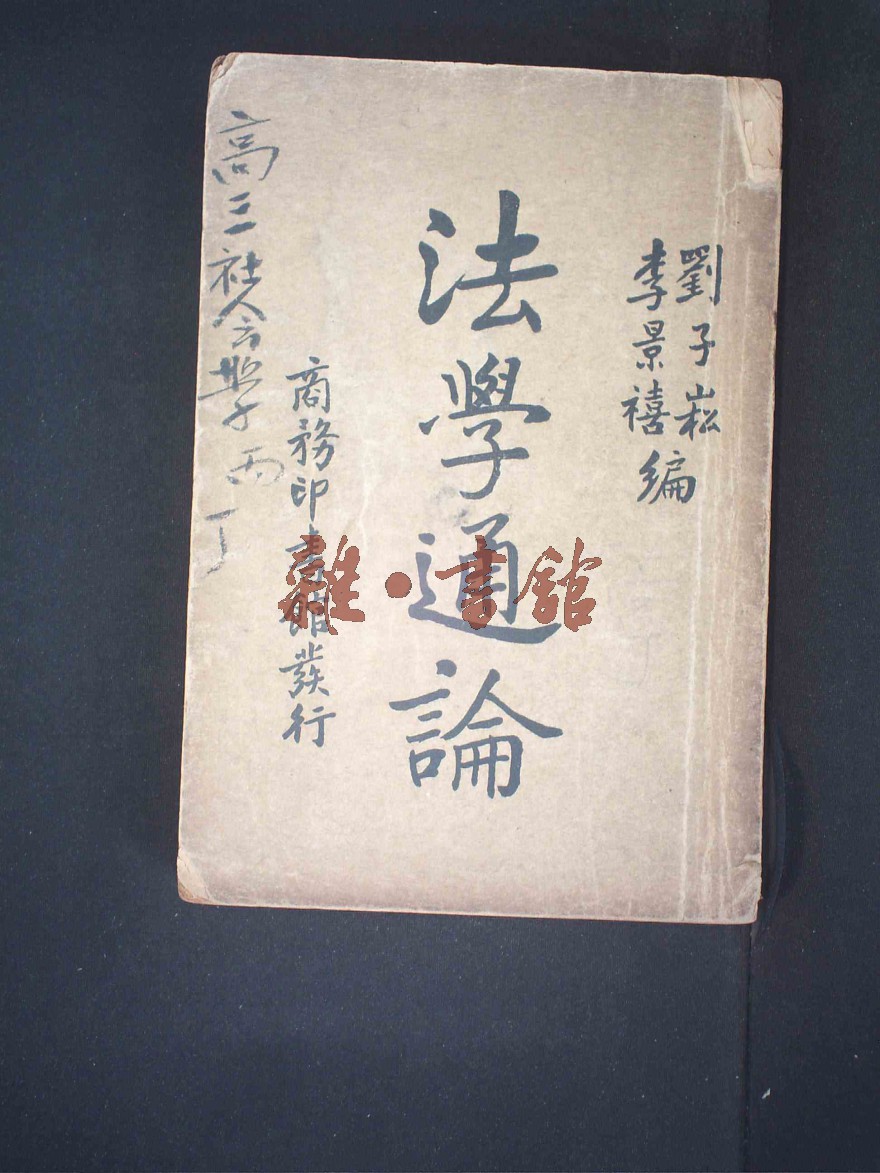 劉子崧
李景禧
編
法學通論
商務印書館發行
高三社会學丙丁
雜·書館